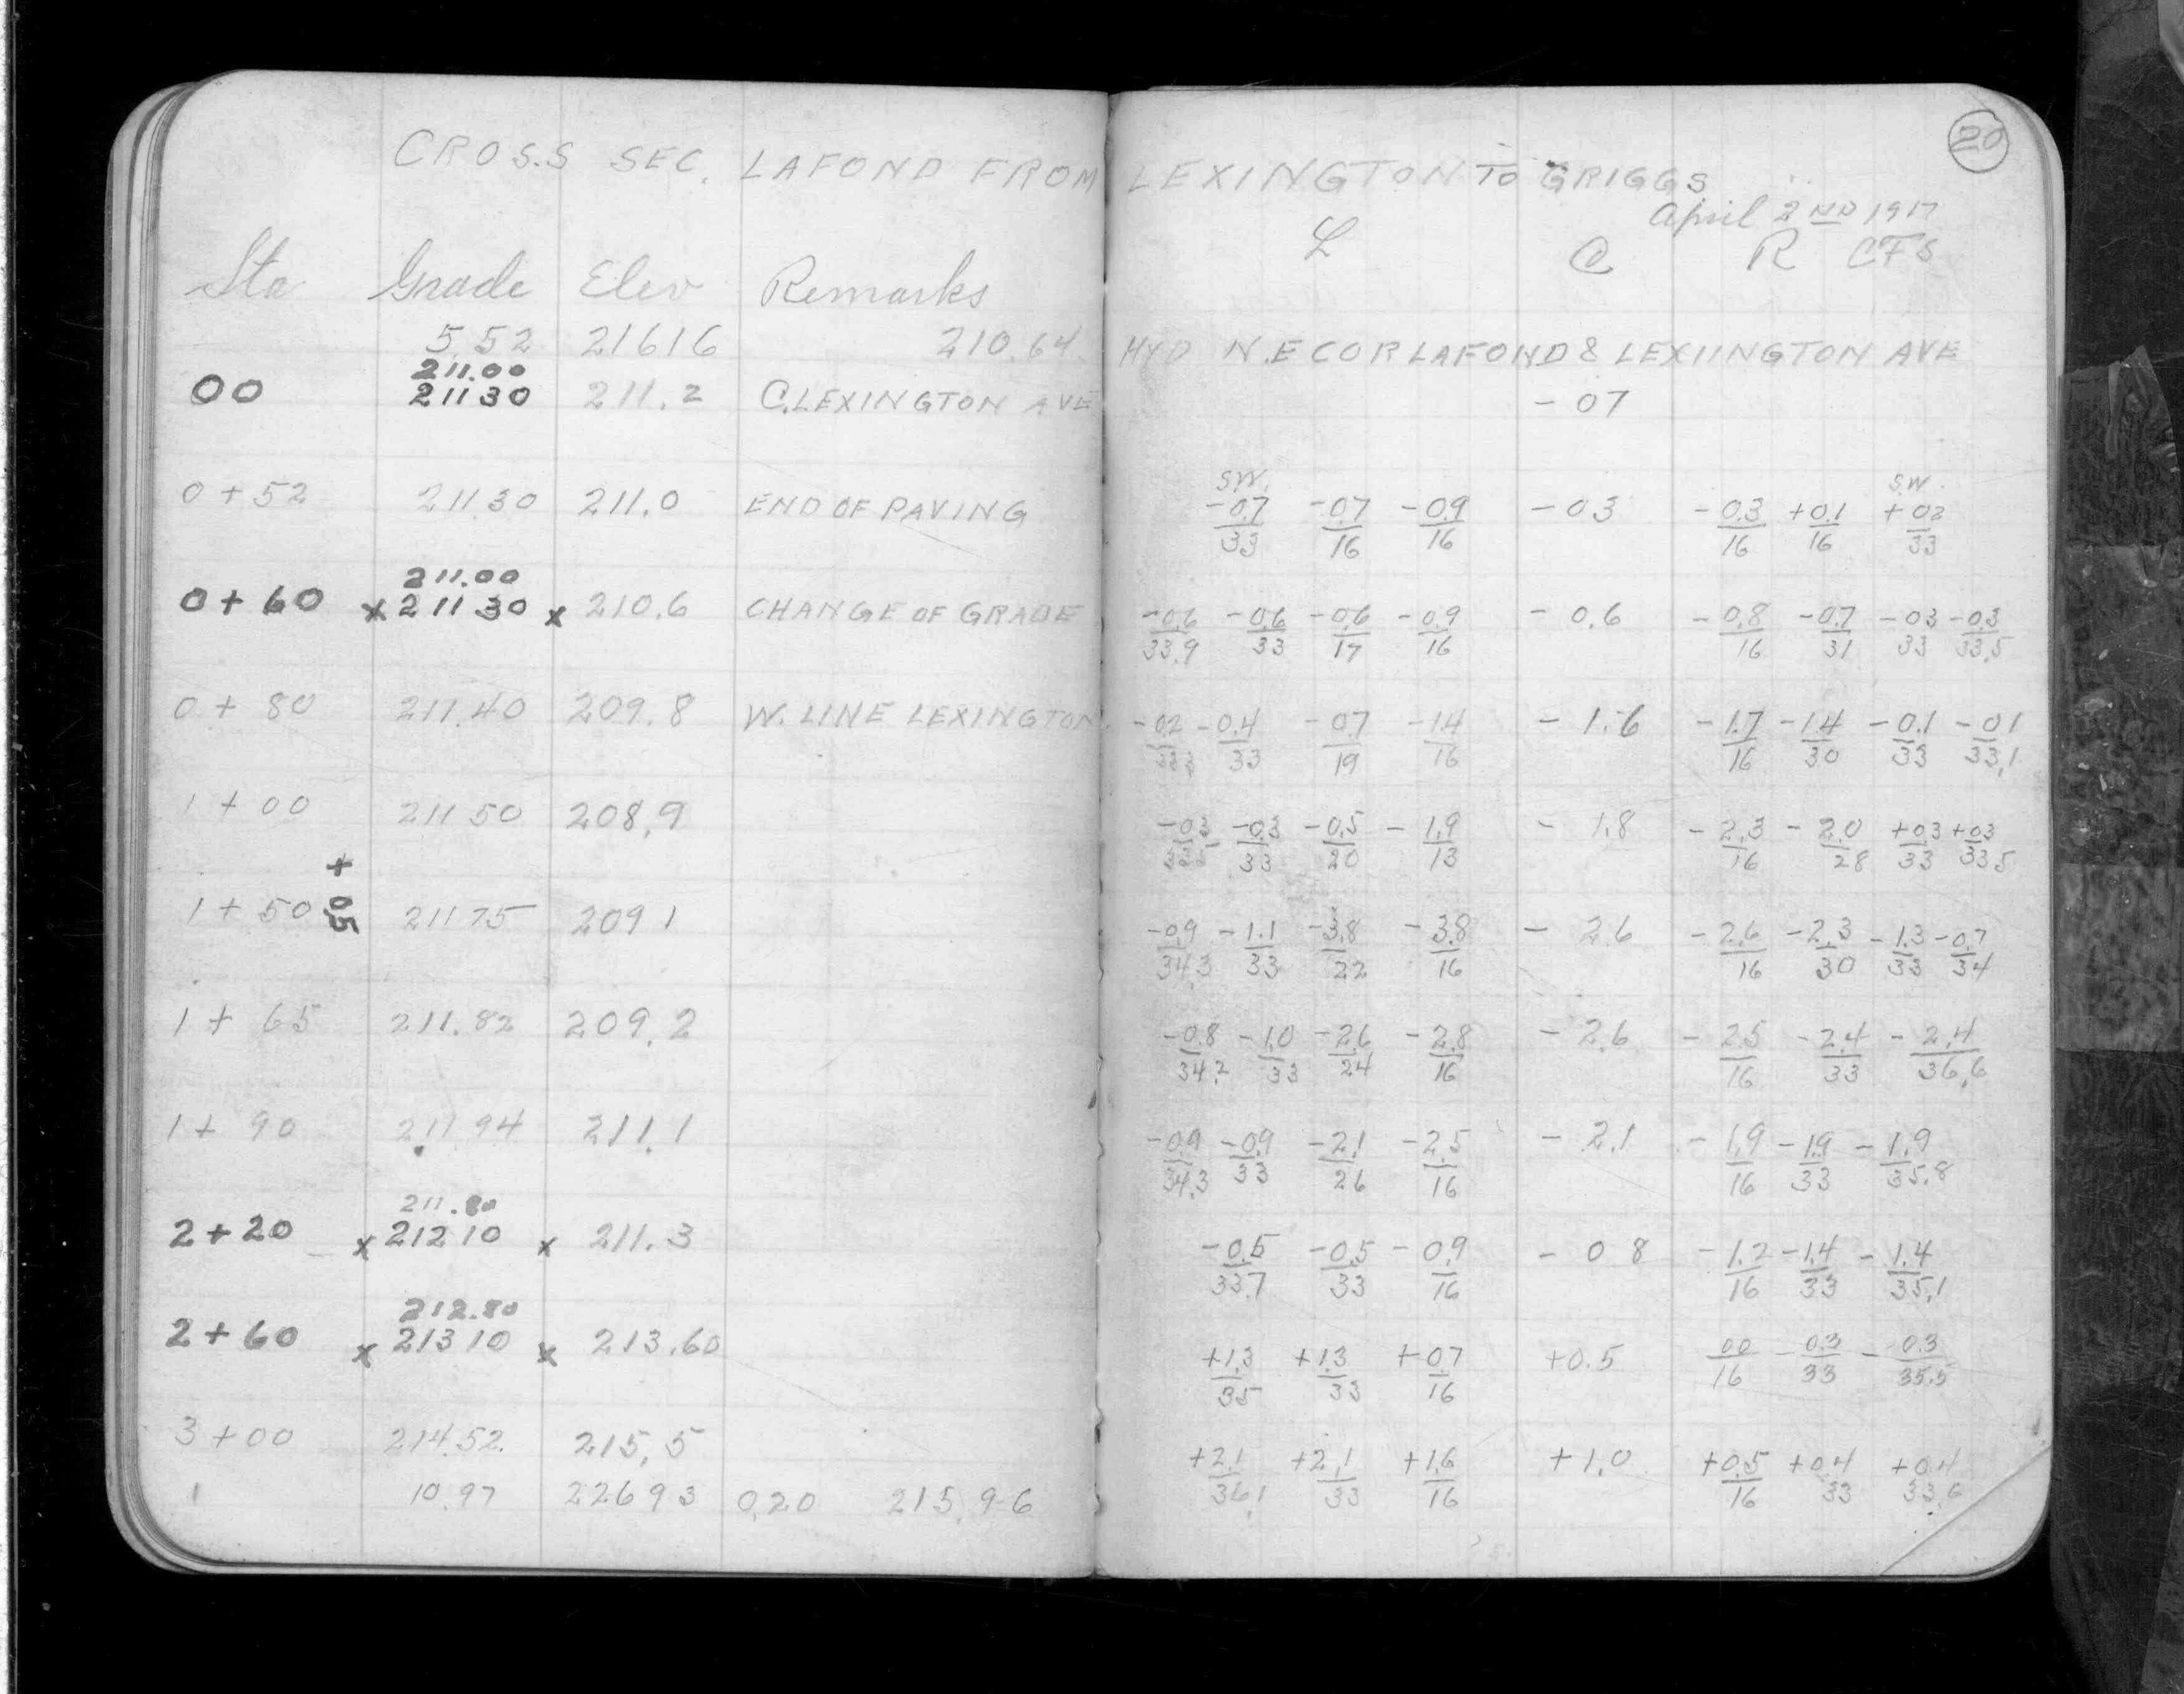 20
CROSS SEC. LAFOND FROM LEXINGTON TO GRIGGS
April 2ND 1917
Sta Grade Elev Remarks L C R CFS
5.52 21616 210.64 HYD N.E COR LAFOND & LEXIINGTON AVE
211.00
00 21130 211.2 C.LEXINGTON AVE - 07
S.W. S.W.
0+52 21130 211.0 END OF PAVING -0.7/33 -0.7/16 -0.9/16 -03 -0.3/16 +0.1/16 +03/33
211.00
0+60 x 21130 x 210.6 CHANGE OF GRADE -0.6/33.9 -0.6/33 -0.6/17 -0.9/16 -0.6 -0.8/16 -0.7/31 -03/33 -0.3/33.5
0+80 211.40 209.8 W. LINE LEXINGTON -02/33.3 -0.4/33 -07/19 -1.4/16 -1.6 -1.7/16 -1.4/30 -0.1/33 -01/33.1
1+00 21150 208.9 -0.3/ -0.3/33 -0.5/20 -1.9/13 -1.8 -2.3/16 -2.0/28 +03/33 +03/33.5
+05
1+50 21175 2091 -0.9/34.3 -1.1/33 -3.8/22 -3.8/16 -2.6 -2.6/16 -2.3/30 -1.3/33 -0.7/34
1+65 211.82 209.2 -0.8/34.2 -1.0/33 -2.6/24 -2.8/16 -2.6 -2.5/16 -2.4/33 -2.4/36.6
1+90 211.94 211.1 -0.9/34.3 -0.9/33 -2.1/26 -2.5/16 -2.1 -1.9/16 -1.9/33 -1.9/35.8
211.80
2+20 x 21210 x 211.3 -0.5/33.7 -0.5/33 -0.9/16 -08 -1.2/16 -1.4/33 -1.4/35.1
212.80
2+60 x 21310 x 213.60 +1.3/35 +1.3/33 +0.7/16 +0.5 00/16 -0.3/33 -0.3/35.5
3+00 214.52. 215.5 +2.1/36.1 +2.1/33 +1.6/16 +1.0 +0.5/16 +0.4/33 +0.4/33.6
10.97 22693 0.20 215.96